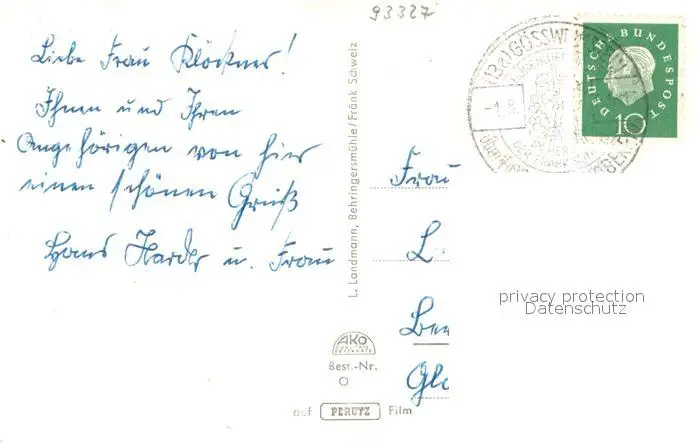 93327
Liebe Frau Klöckner!
Ihnen und Ihren
Angehörigen von hier
einen schönen Gruß
Hans Harder u. Frau
L. Landmann, Behringersmühle/Fränk Schweiz
AKO
Best.-Nr.
auf PERUTZ Film
(13a) GÖSSW
-1.8.
DEUTSCHE BUNDESPOST
10
Frau
L.
Gl
privacy protection
Datenschutz